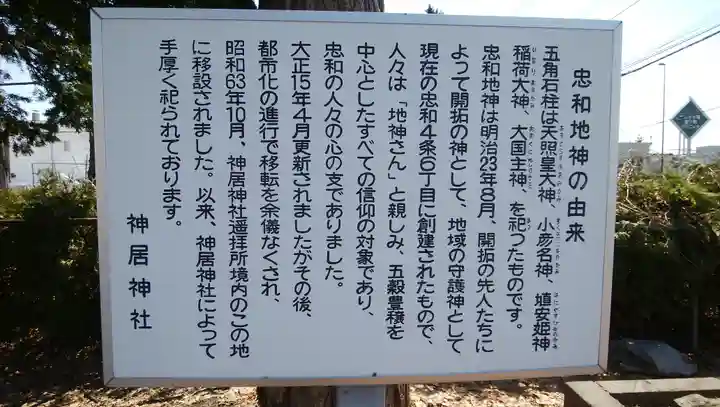 忠和地神の由来
五角石柱は天照皇大神、小彦名神、埴安姫神
稲荷大神、大国主神、を祀つたものです。
忠和地神は明治23年8月、開拓の先人たちに
よって開拓の神として、地域の守護神として
現在の忠和4条6丁目に創建されたもので、
人々は「地神さん」と親しみ、五穀豊穣を
中心としたすべての信仰の対象であり、
忠和の人々の心の支でありました。
大正15年4月更新されましたがその後、
都市化の進行で移転を余儀なくされ、
昭和63年10月、神居神社遥拝所境内のこの地
に移設されました。以来、神居神社によって
手厚く祀られております。
神居神社